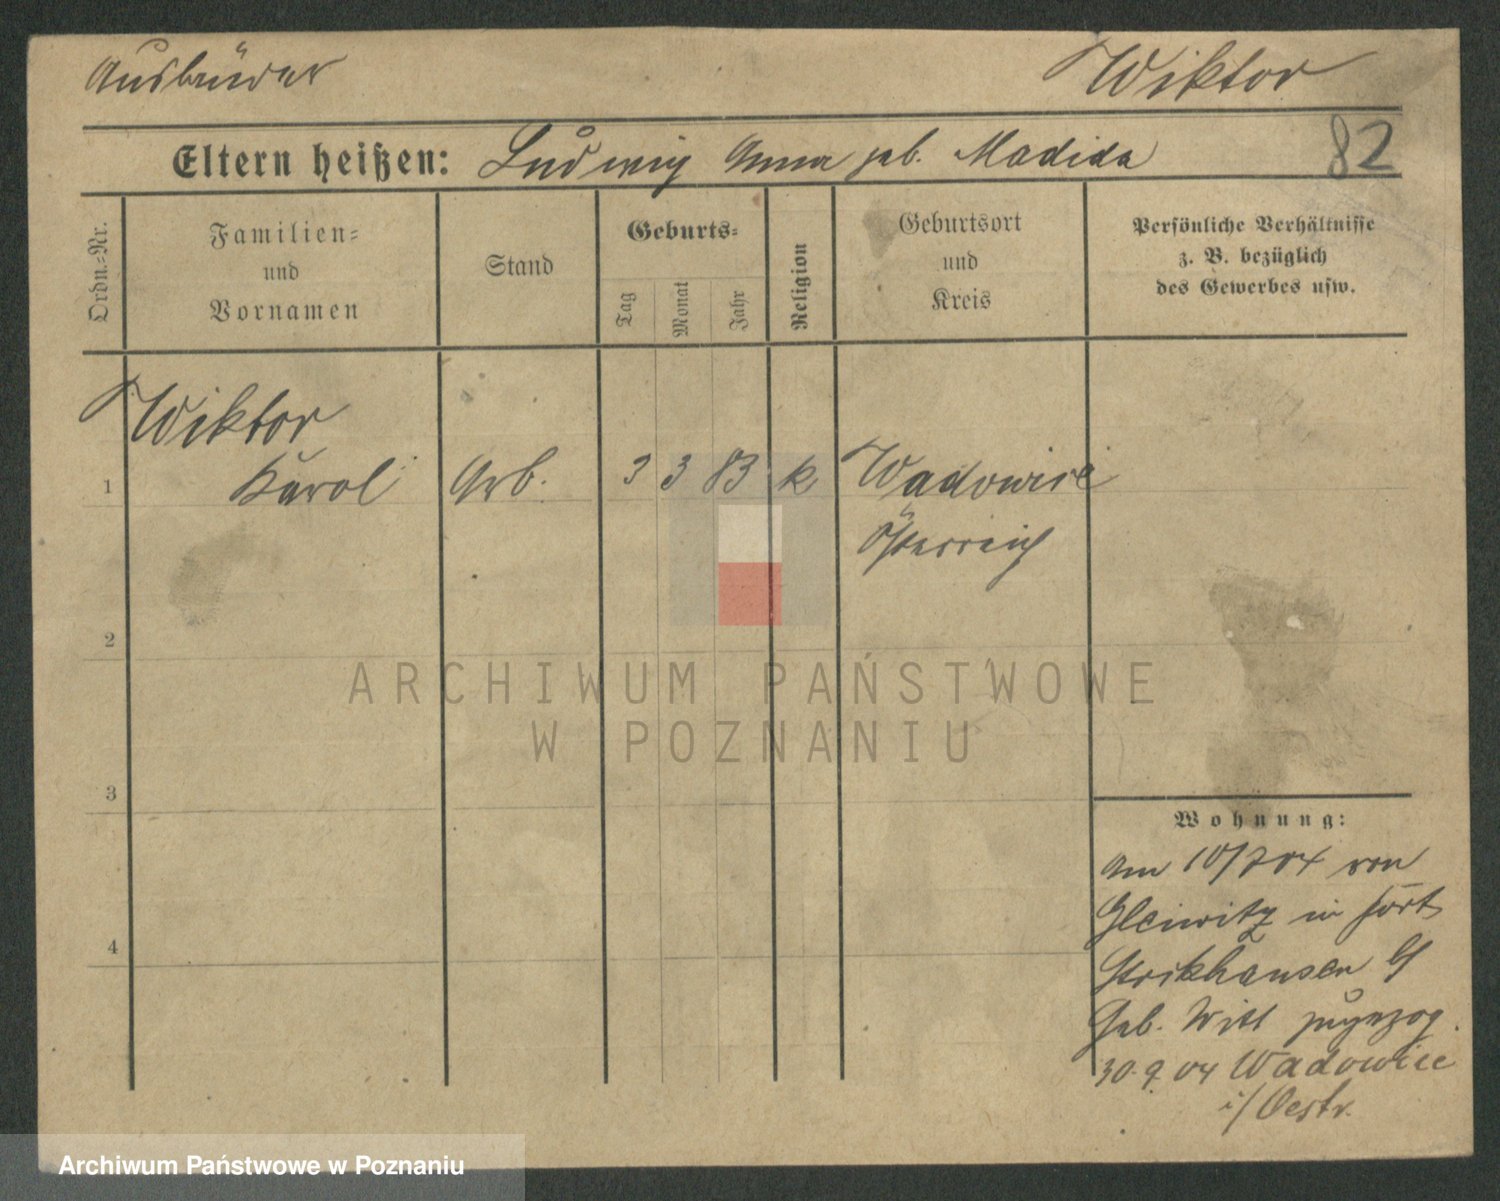 Ausländer Wiktor
82
Eltern heißen: Ludwig Anna geb. Madida
Ordn.=Nr.
Familien= und Vornamen
Stand
Geburts=
Tag
Monat
Jahr
Religion
Geburtsort und Kreis
Persönliche Verhältnisse
z. B. bezüglich
des Gewerbes usw.
Wiktor
1 Karol Arb. 3 3 83 k Wadowice
Österreich
2
3
4
Wohnung:
Am 10/7 04 von
Gleiwitz in Fort
30.9.04 Wadowice
i/Oestr.
ARCHIWUM PAŃSTWOWE
W POZNANIU
Archiwum Państwowe w Poznaniu